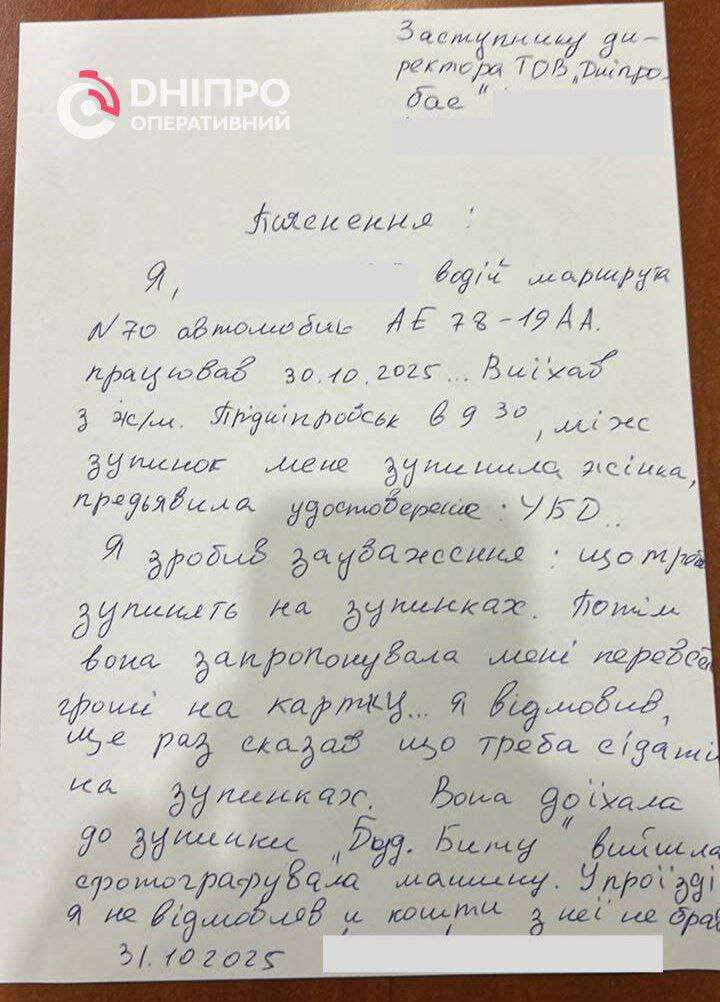 ДНІПРО
ОПЕРАТИВНИЙ
Заступнику ди-
ректора ТОВ „Дніпро-
бас"
Пояснення :
Я, водій маршрута
N 70 автомобиль АЕ 78-19 АА.
працював 30.10.2025... Виїхав
з ж/м. Придніпровськ в 9 30, між
зупинок мене зупинила жінка,
предьявила удостоверение : УБД..
Я зробив зауваження : що треба
зупинять на зупинках. Потім
вона запропонувала мені перевести
гроші на картку... Я відмовив,
ще раз сказав що треба сідати
на зупинках. Вона доїхала
до зупинки „Буд. Биту" вийшла
сфотографувала машину. У проїзді
я не відмовляв и кошти з неї не брав
31.10 2025